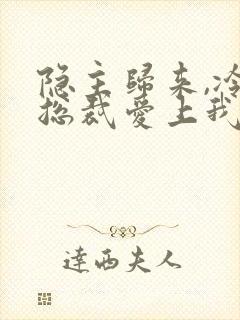 隐主歸来,冷
总裁爱上我
達西夫人